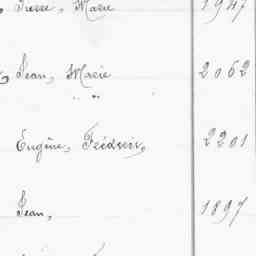 Pierre, Marie 1947
Jean, Marie 2062
" "
Eugène, Frédéric, 2201
Jean, 1897